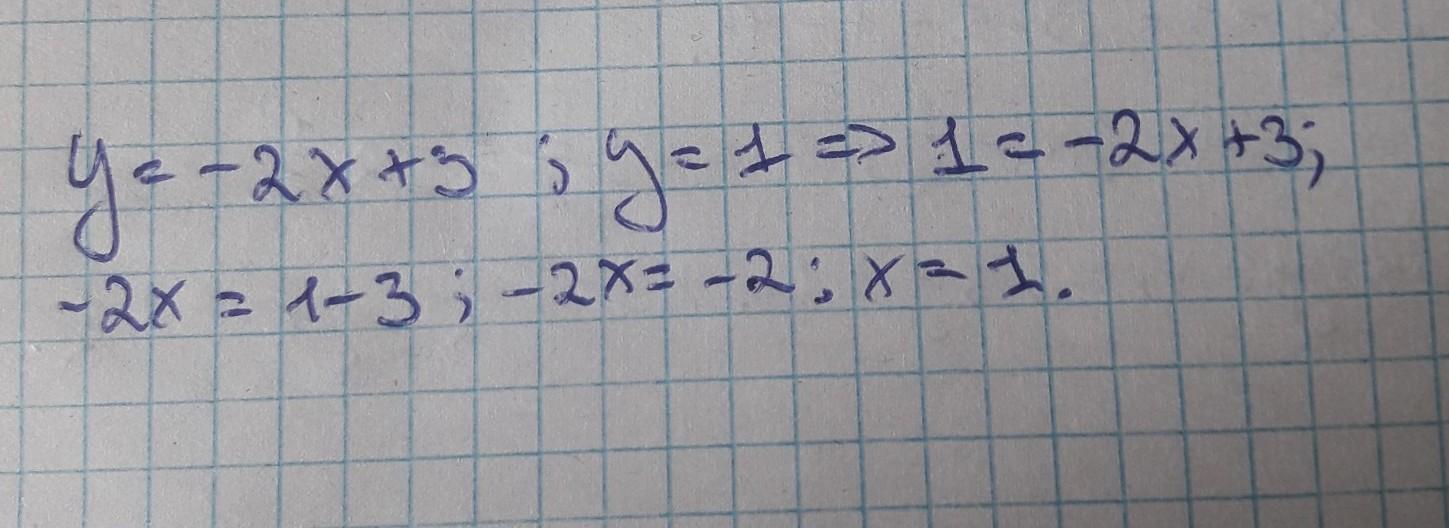 y = -2x + 3 ; y = 1 => 1 = -2x + 3;
-2x = 1 - 3 ; -2x = -2 ; x = 1.